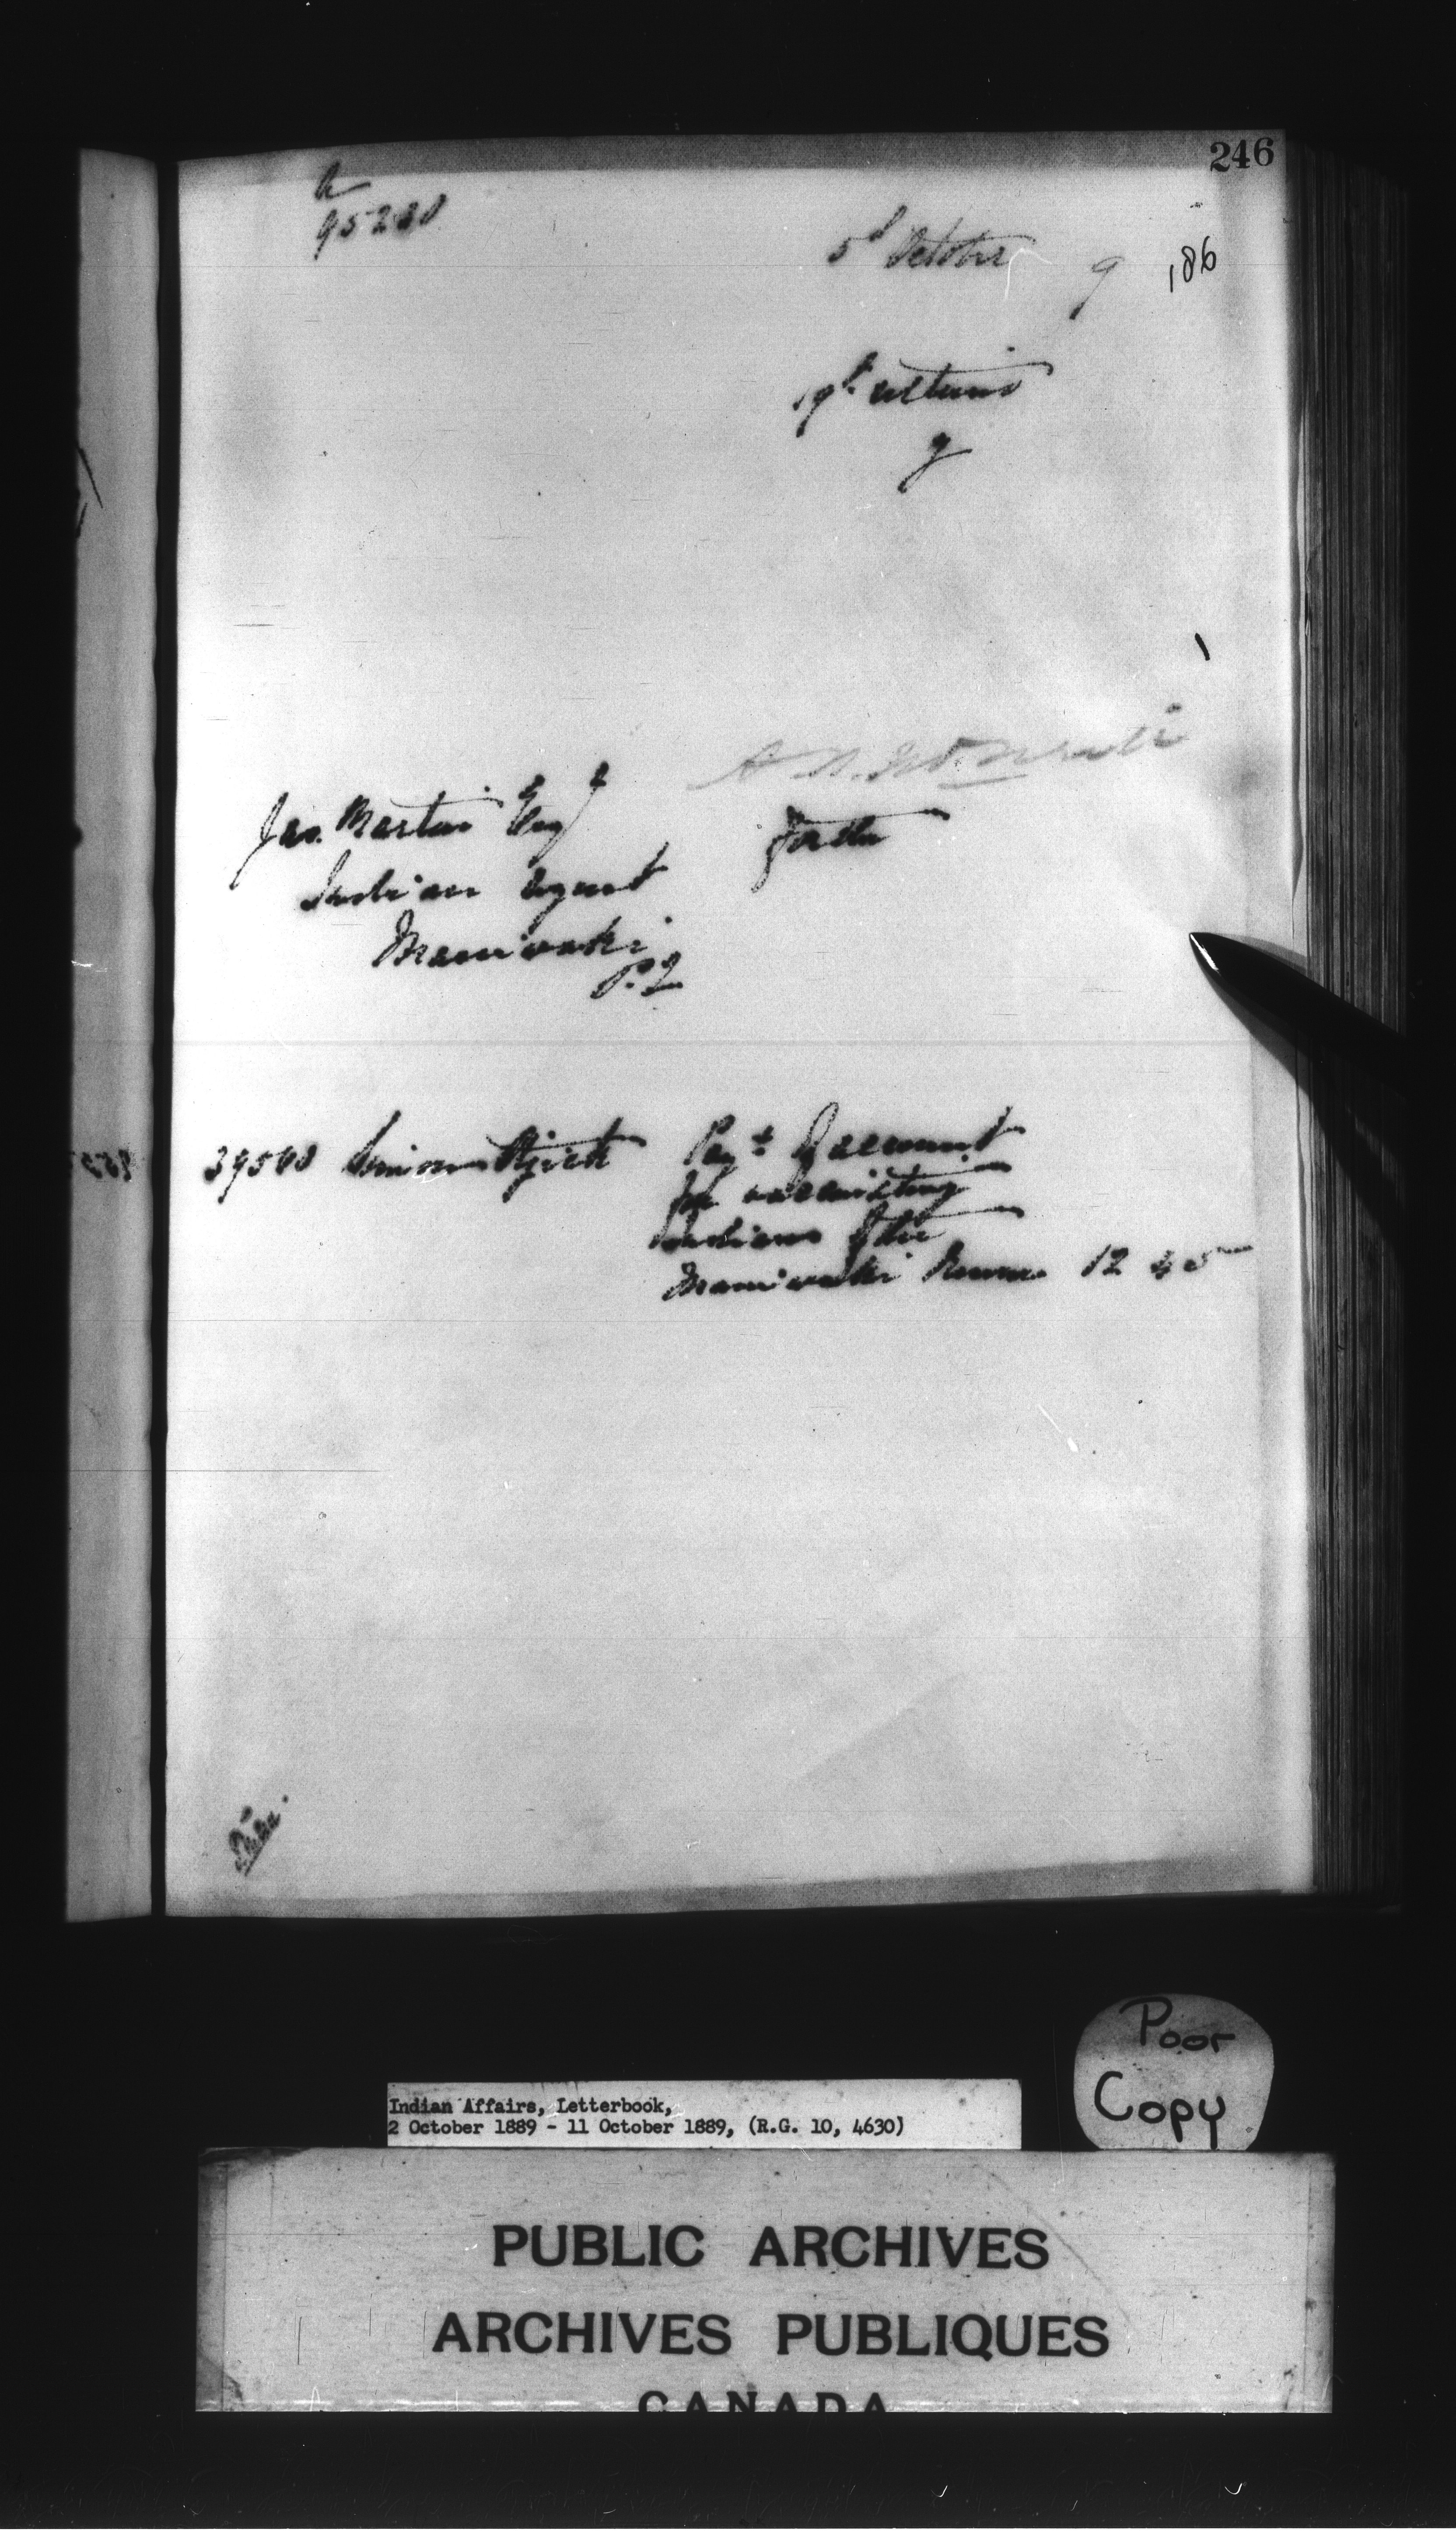 246
95230
5th October 9
186
19th ultimo
9
Jas. Martin Esqre
Indian Agent
Maniwaki
P.Q
for the
Simon Payt of account
for vaccinating
Indians of the
Maniwaki Reserve 12 45
Poor
Copy
Indian Affairs, Letterbook,
2 October 1889 - 11 October 1889, (R.G. 10, 4630)
PUBLIC ARCHIVES
ARCHIVES PUBLIQUES
CANADA